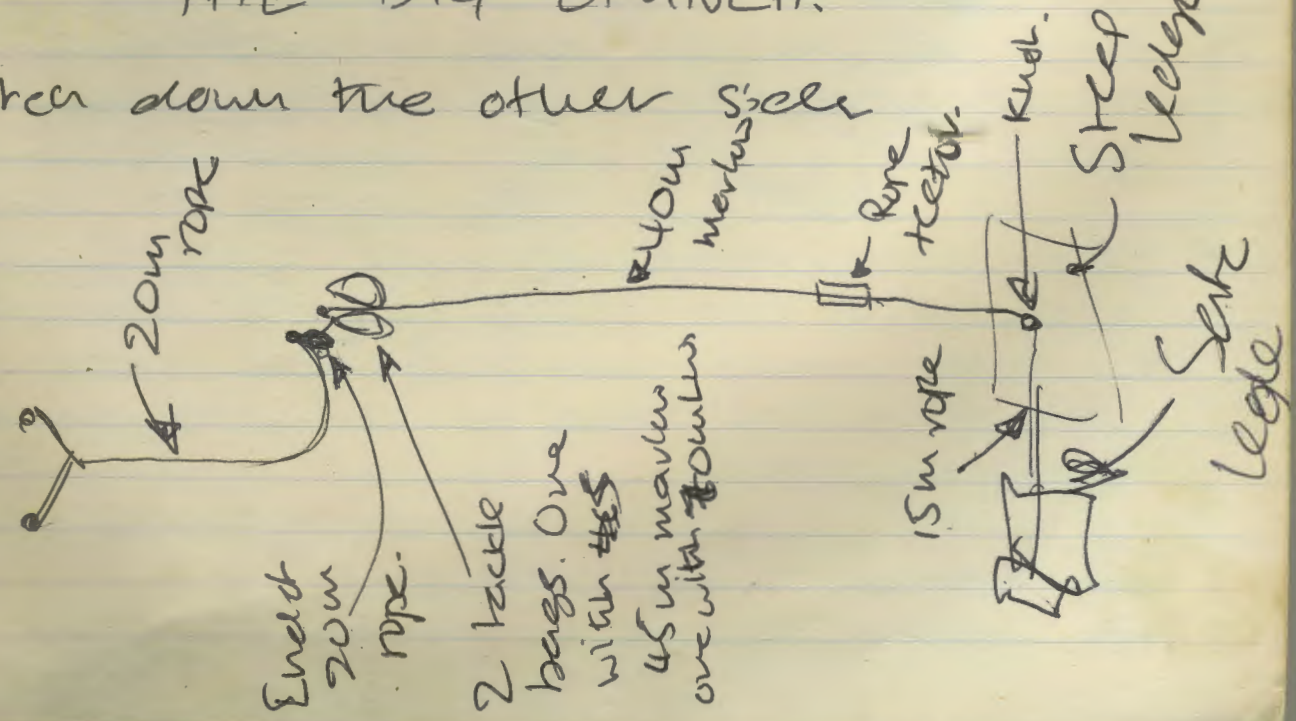 THE BIG
down the other side
20m
rope
End of
20m
rope.
2 tackle
bags. One
with
45m marlow
one with 40m marlow
40m
marlow
Rope
tector.
Knot.
Steep
ledge
15m rope
ledge